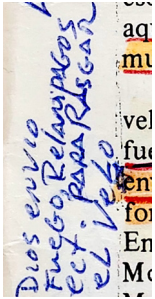 Dios envio
Fuego, Relampagos
ect. PARA RASGAR
el Velo
aqu
mu
vel
fue
ent
for
En
Mo